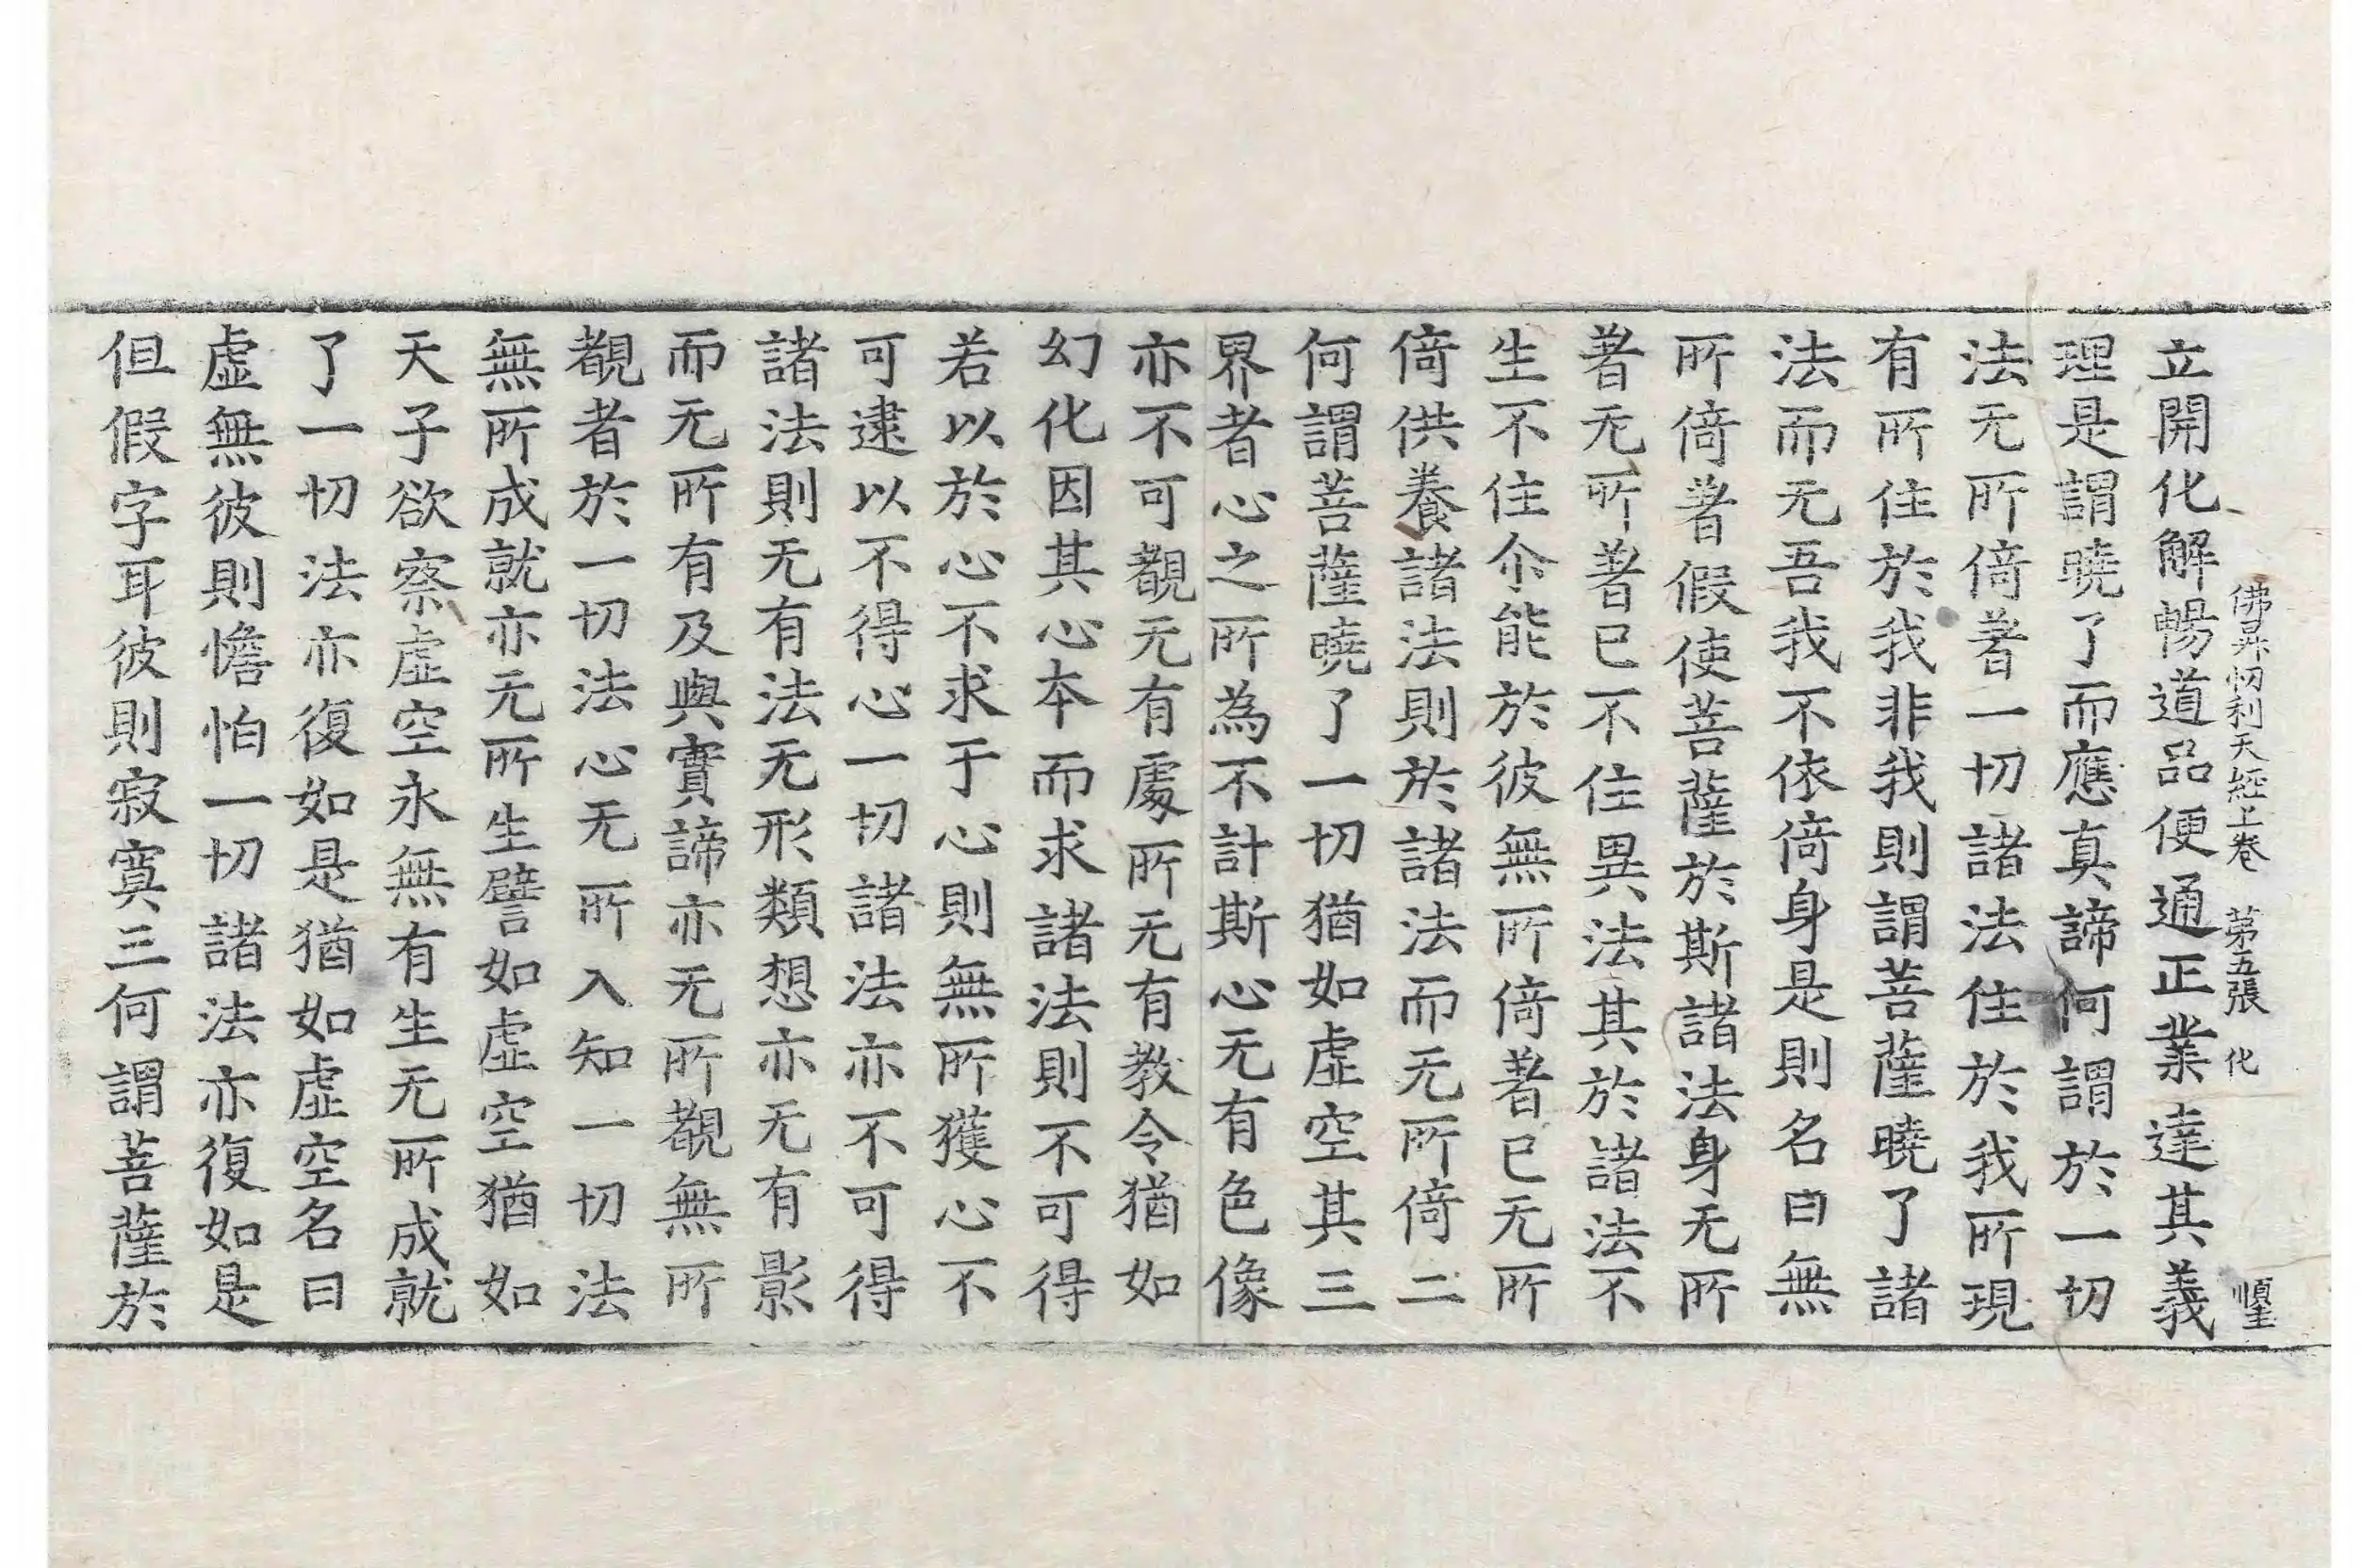 佛昇忉利天經上卷 第五張 化
立開化解暢道品便通正業達其義
理是謂曉了而應真諦何謂於一切
法无所倚著一切諸法住於我所現
有所住於我非我則謂菩薩曉了諸
法而无吾我不依倚身是則名曰無
所倚著假使菩薩於斯諸法身无所
著无所著已不住異法其於諸法不
生不住尒能於彼無所倚著已无所
倚供養諸法則於諸法而无所倚二
何謂菩薩曉了一切猶如虛空其三
界者心之所為不計斯心无有色像
亦不可覩无有處所无有教令猶如
幻化因其心本而求諸法則不可得
若以於心不求于心則無所獲心不
可逮以不得心一切諸法亦不可得
諸法則无有法无形類想亦无有影
而无所有及與實諦亦无所覩無所
覩者於一切法心无所入知一切法
無所成就亦无所生譬如虛空猶如
天子欲察虛空永無有生无所成就
了一切法亦復如是猶如虛空名曰
虛無彼則憺怕一切諸法亦復如是
但假字耳彼則寂寞三何謂菩薩於